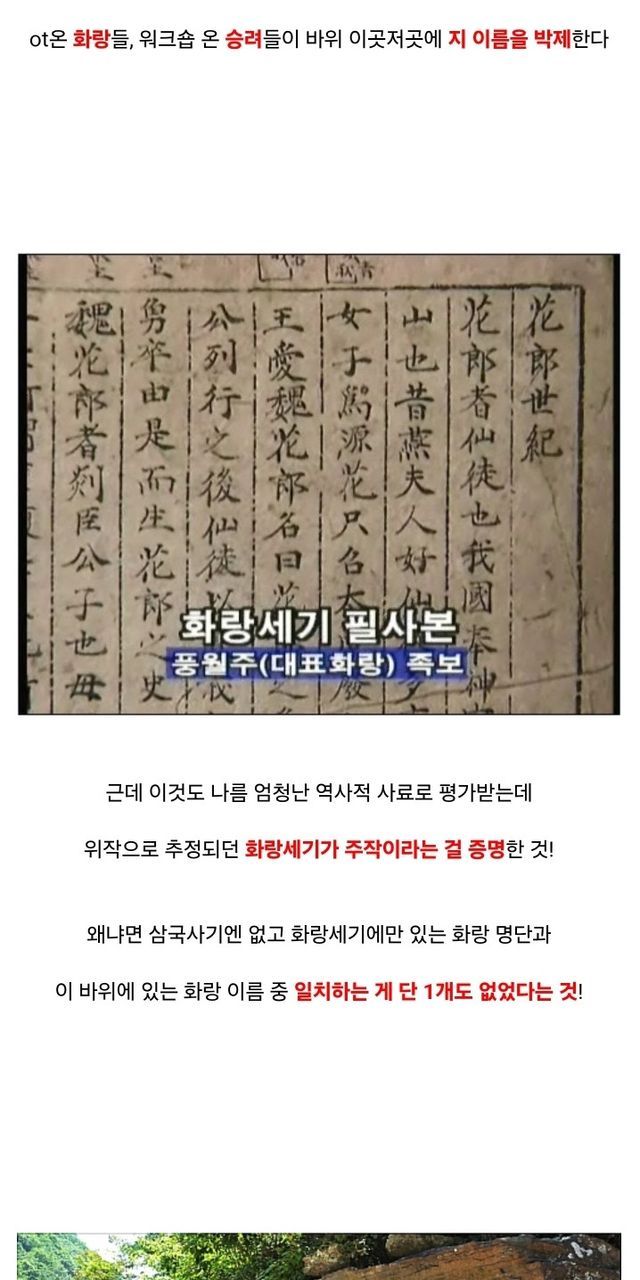 ot온 화랑들, 워크숍 온 승려들이 바위 이곳저곳에 지 이름을 박제한다
花郎世紀
花郎者仙徒也我國奉神
山也昔燕夫人好仙
女子爲源花只召太
王愛魏花郎名曰花
公列行之後仙徒
勇卒由是而生花郎之史
魏花郎者剡臣公子也母
화랑세기 필사본
풍월주(대표화랑) 족보
근데 이것도 나름 엄청난 역사적 사료로 평가받는데
위작으로 추정되던 화랑세기가 주작이라는 걸 증명한 것!
왜냐면 삼국사기엔 없고 화랑세기에만 있는 화랑 명단과
이 바위에 있는 화랑 이름 중 일치하는 게 단 1개도 없었다는 것!